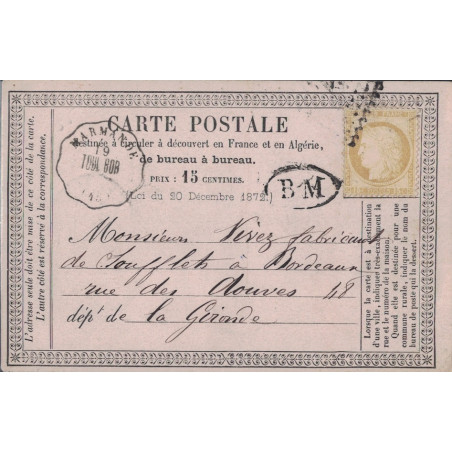 CARTE POSTALE
destinée à circuler à découvert en France et en Algérie,
de bureau à bureau.
PRIX : 15 CENTIMES.
(Loi du 20 Décembre 1872.)
MARMANDE
19
TOUL BOR
BM
Monsieur Vivez fabricant
de Soufflets à Bordeaux
rue des douves 48
dépt de la Gironde
L'adresse seule doit être mise de ce côté de la carte.
L'autre côté est réservé à la correspondance.
Lorsque la carte est à destination
d'une ville, indiquer très-exactement la
rue et le numéro de la maison.
Quand elle est destinée pour une
commune rurale, indiquer le nom du
bureau de poste qui la dessert.